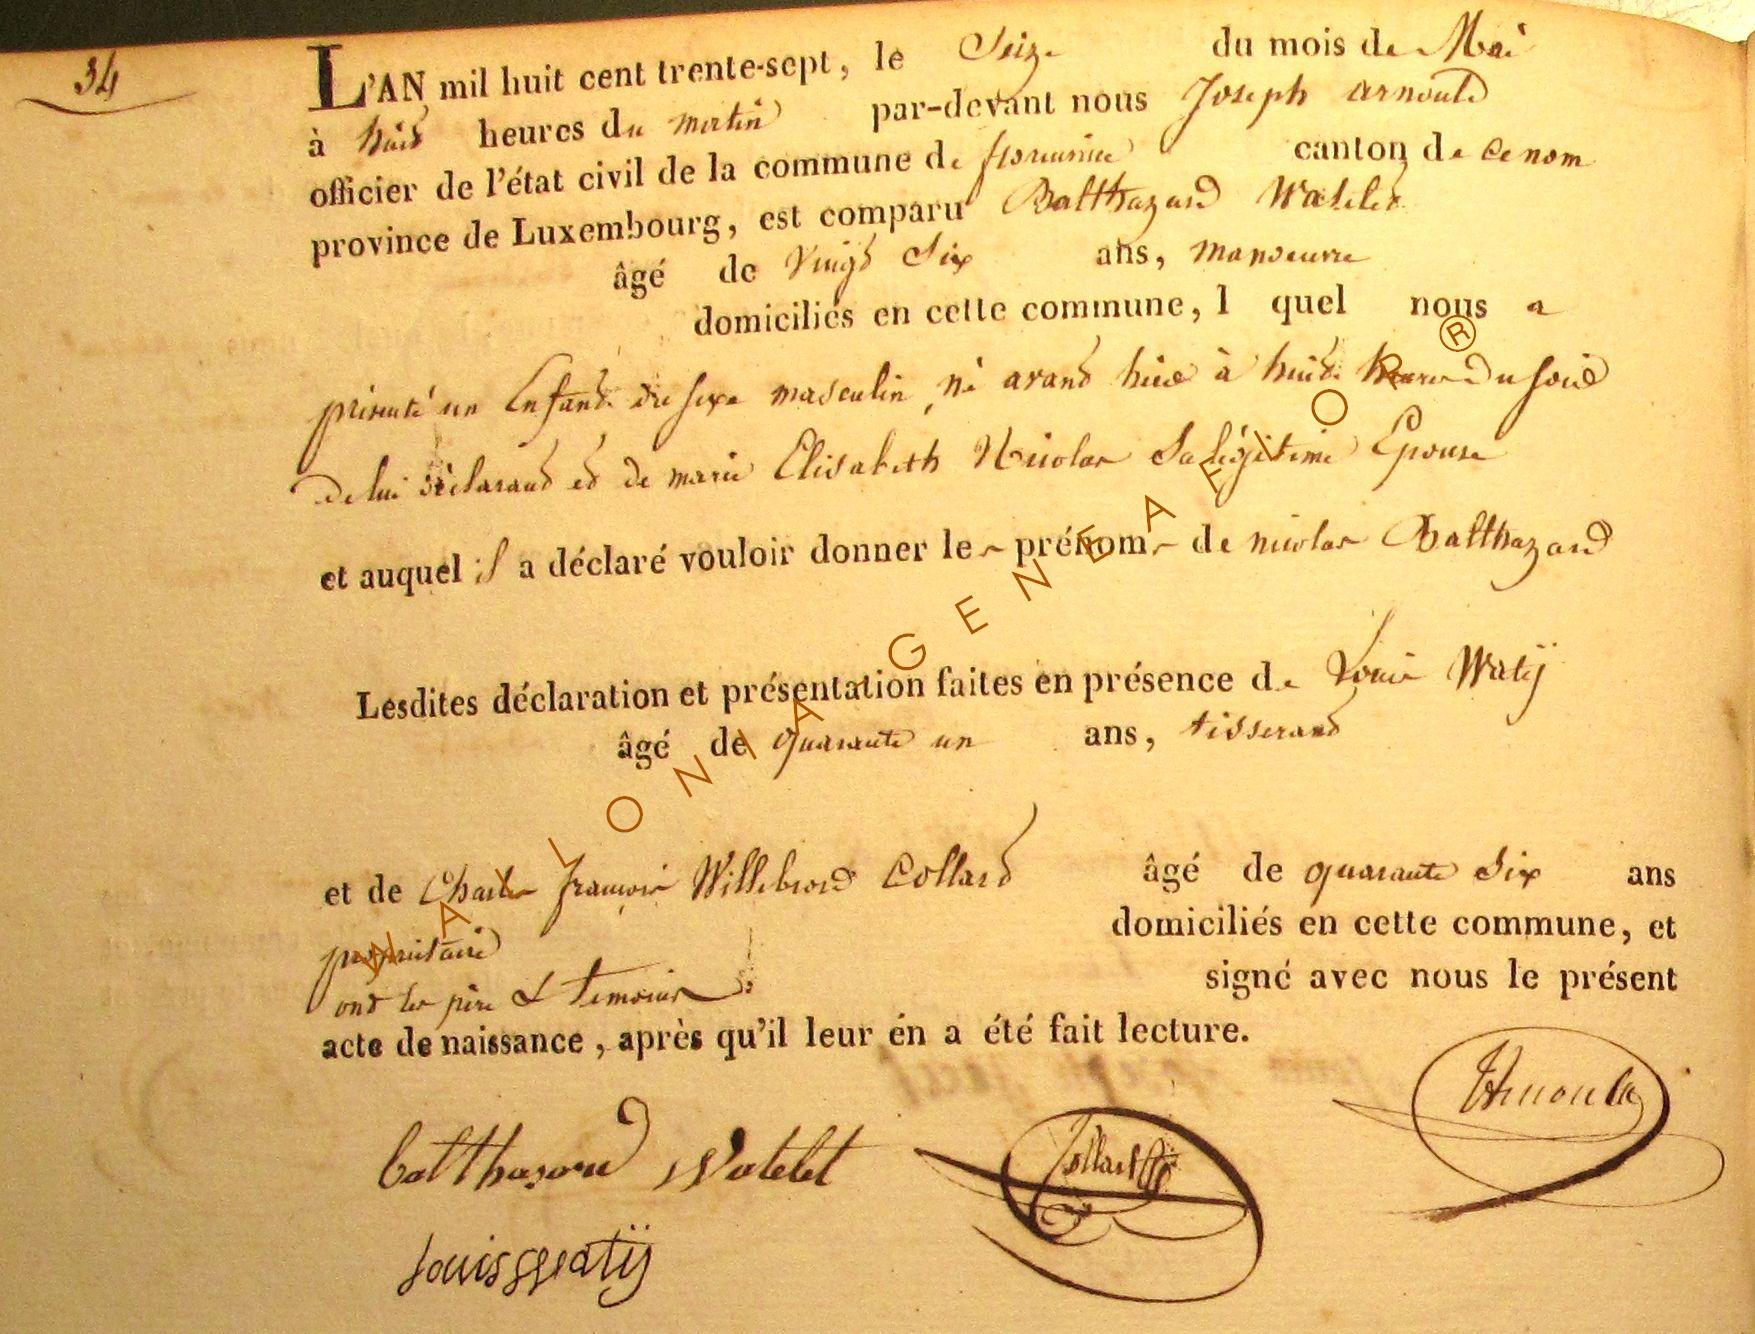 34
L'AN mil huit cent trente-sept, le Seize du mois de Mai
à huit heures du matin par-devant nous Joseph Arnould
officier de l'état civil de la commune de florenville canton de ce nom
province de Luxembourg, est comparu Balthazard Watelet
âgé de vingt Six ans, manoeuvre
domiciliés en cette commune, l quel nous a
présenté un Enfant du sexe masculin, né avant hier à huit heures du soir
de lui déclarant et de marie Elisabeth Nicolas Sa légitime Epouse
et auquel il a déclaré vouloir donner les prénoms de nicolas Balthazard
Lesdites déclaration et présentation faites en présence de Louis Watÿ
âgé de quarante un ans, tisserand
et de Charles françois Willebrord Collard âgé de quarante Six ans
propriétaire domiciliés en cette commune, et
ont les père & temoins signé avec nous le présent
acte de naissance, après qu'il leur én a été fait lecture.
Arnould
balthazard Watelet
Collard
Louis Watÿ
WALONIA GENEAELO R ®